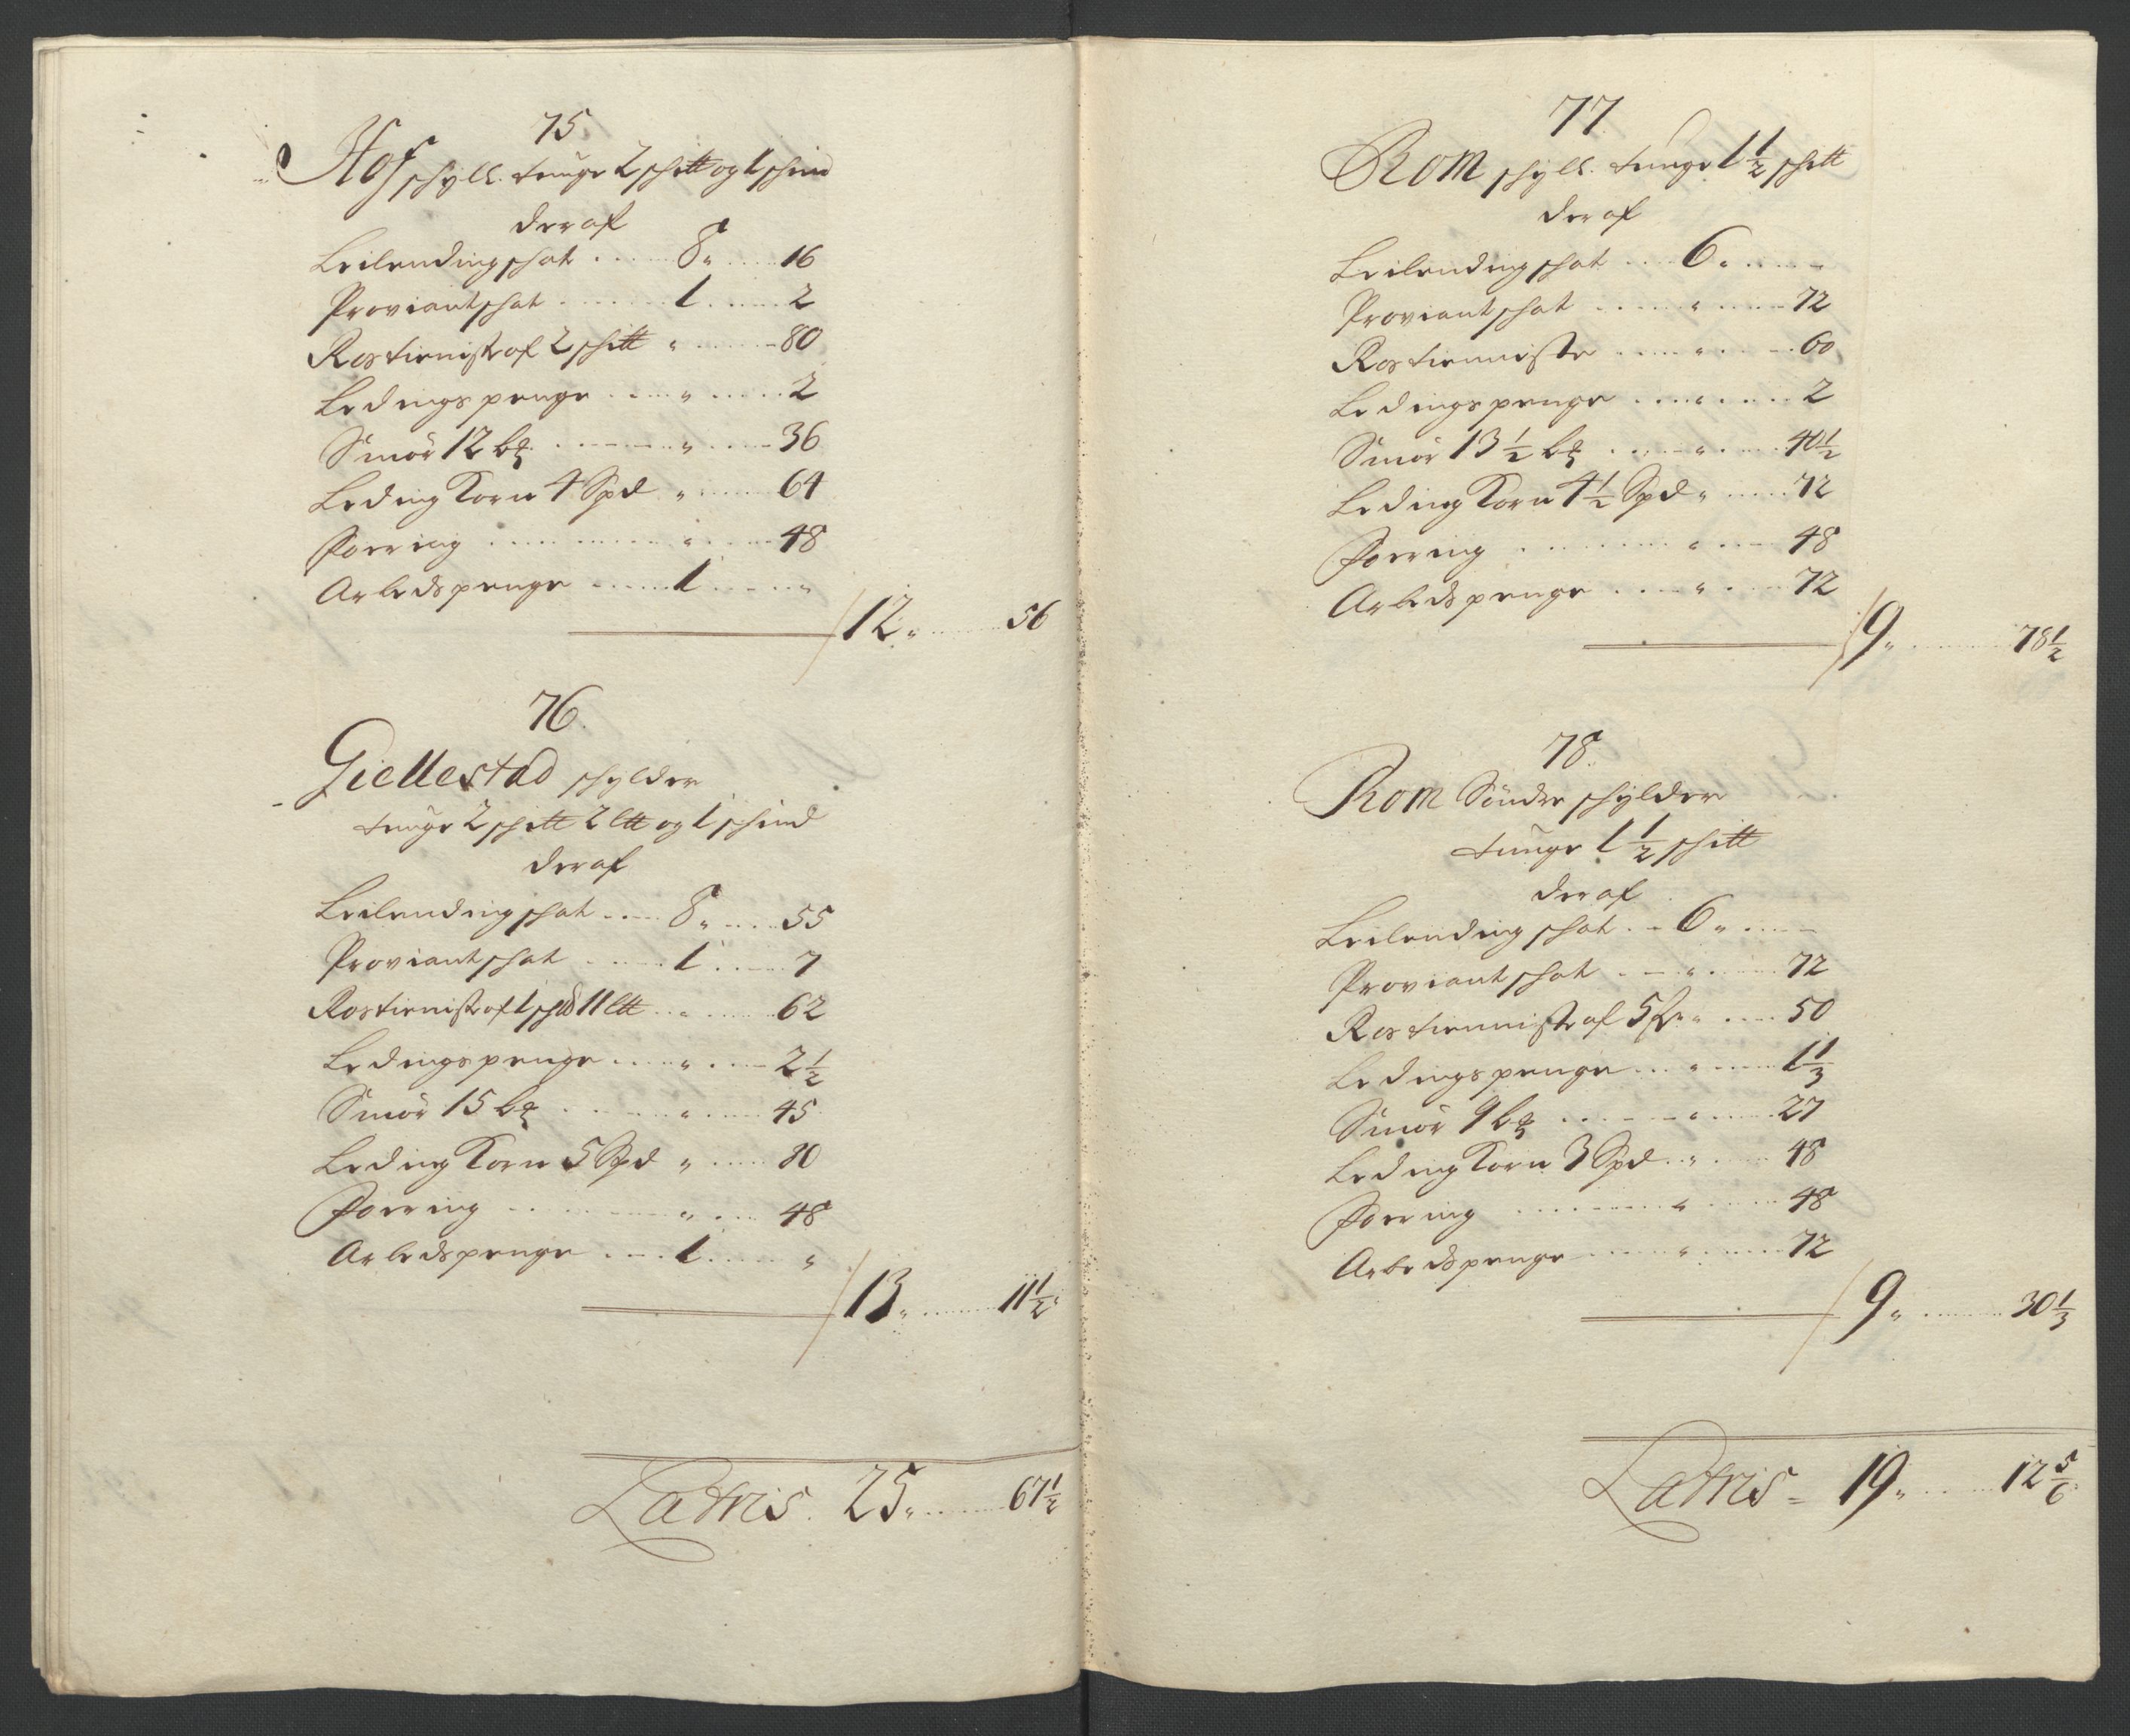 75.
Hof schyll. tunge 2 schitt og 1 schind
deraf
Leilending schat . . . . 8 „ . . . . 16
Proviantschat . . . . 1 . . . . 2
Rostienist af 2 schitt „ . . . . 80
Ledingspenge . . . . „ . . . . 2
Smör 12 b℔ . . . . „ . . . . 36
Leding Korn 4 Spd „ . . . . 64
Foering . . . . „ . . . . 48
Arbedspenge . . . . 1 . . . . „
12 „ . . . . 56
76.
Giellestad schylder
tunge 2 schitt 2 ltt og 1 schind
deraf
Leilending schat . . . . 8 „ . . . . 55
Proviantschat . . . . 1 . . . . 7
Rostienist af 1 schd 11 ltt . . „ . . . . 62
Ledingspenge . . . . „ . . . . 2 1/2
Smör 15 b℔ . . . . „ . . . . 45
Leding Korn 5 Spd „ . . . . 80
Foering . . . . „ . . . . 48
Arbedspenge . . . . 1 . . . . „
13 „ . . . . 11 1/2
Latris . 25 „ . . . . 67 1/2
77.
Rom schyll. tunge 1 1/2 schitt
deraf
Leilending schat . . . . 6 „ . . . . –
Proviantschat . . . . „ . . . . 72
Rostienniste . . . . „ . . . . 60
Ledingspenge . . . . „ . . . . 2
Smör 13 1/2 b℔ . . . . „ . . . . 40 1/2
Leding Korn 4 1/2 Spd „ . . . . 72
Foering . . . . „ . . . . 48
Arbedspenge . . . . „ . . . . 72
9 „ . . . . 78 1/2
78.
Rom Söndre schylder
tunge 1 1/2 schitt
deraf
Leilending schat . . 6 „ . . . . –
Proviantschat . . . . „ . . . . 72
Rostiennist af 5 „ . . . . 50
Ledingspenge . . . „ . . . . 1 1/3
Smör 9 b℔ . . . . „ . . . . 27
Leding Korn 3 Spd . . „ . . . . 48
Foering . . . . „ . . . . 48
Arbedspenge . . . . „ . . . . 72
9 „ . . . . 30 1/3
Latris = 19 „ . . . . 12 5/6